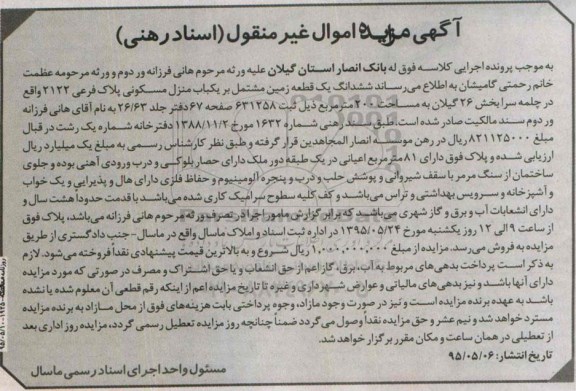 آگهی مزایده اموال غیر منقول (اسناد رهنی)
به موجب پرونده اجرایی کلاسه فوق له بانک انصار استان گیلان علیه ورثه مرحوم هانی فرزانه ور دوم و ورثه مرحومه عظمت
خانم رحمتی گامیشان به اطلاع می‌رساند ششدانگ یک قطعه زمین مشتمل بر یکباب منزل مسکونی پلاک فرعی ۲۱۲۲ واقع
در چلمه سرا بخش ۲۶ گیلان به مساحت ۲۰۰ مترمربع ذیل ثبت ۶۳۱۲۵۸ صفحه ۶۷ دفتر جلد ۲۶/۶۳ به نام آقای هانی فرزانه
ور دوم سند مالکیت صادر شده است. طبق سند رهنی شماره ۱۶۳۲ مورخ ۱۳۸۸/۱۱/۲ دفترخانه شماره یک رشت در قبال
مبلغ ۸۲۱۱۲۵۰۰۰ ریال در رهن موسسه انصار المجاهدین قرار گرفته و طبق نظر کارشناس رسمی به مبلغ یک میلیارد ریال
ارزیابی شده و پلاک فوق دارای ۸۱ مترمربع اعیانی در یک طبقه دور ملک دارای حصار بلوکی و درب ورودی آهنی بوده و جلوی
ساختمان از سنگ مرمر با سقف شیروانی و پوشش حلب و درب و پنجره آلومینیوم و حفاظ فلزی دارای هال و پذیرایی و یک خواب
و آشپزخانه و سرویس بهداشتی و تراس می‌باشد و کف کلیه سطوح سرامیک کاری شده می‌باشد با قدمت حدوداً هشت سال و
دارای انشعابات آب و برق و گاز شهری می‌باشد که برابر گزارش مامور اجرا در تصرف ورثه مرحوم هانی فرزانه می‌باشد، پلاک فوق
از ساعت ۹ الی ۱۲ روز یکشنبه مورخ ۱۳۹۵/۰۵/۲۴ در اداره ثبت اسناد و املاک ماسال واقع در ماسال-جنب دادگستری از طریق
مزایده به فروش می‌رسد. مزایده از مبلغ ۱,۰۰۰,۰۰۰,۰۰۰ ریال شروع و به بالاترین قیمت پیشنهادی نقداً فروخته می‌شود. لازم
به ذکر است پرداخت بدهی‌های مربوط به آب، برق، گاز اعم از حق انشعاب و یا حق اشتراک و مصرف در صورتی که مورد مزایده
دارای آنها باشد و نیز بدهی‌های مالیاتی و عوارض شهرداری و غیره تا تاریخ مزایده اعم از اینکه رقم قطعی آن معلوم شده یا نشده
باشد به عهده برنده مزایده است و نیز در صورت وجود مازاد، وجوه پرداختی بابت هزینه‌های فوق از محل مازاد به برنده مزایده
مسترد خواهد شد و نیم عشر و حق مزایده نقداً وصول می‌گردد ضمناً چنانچه روز مزایده تعطیل رسمی گردد، مزایده روز اداری بعد
از تعطیلی در همان ساعت و مکان مقرر برگزار خواهد شد.
تاریخ انتشار: ۹۵/۰۵/۰۶
مسئول واحد اجرای اسناد رسمی ماسال